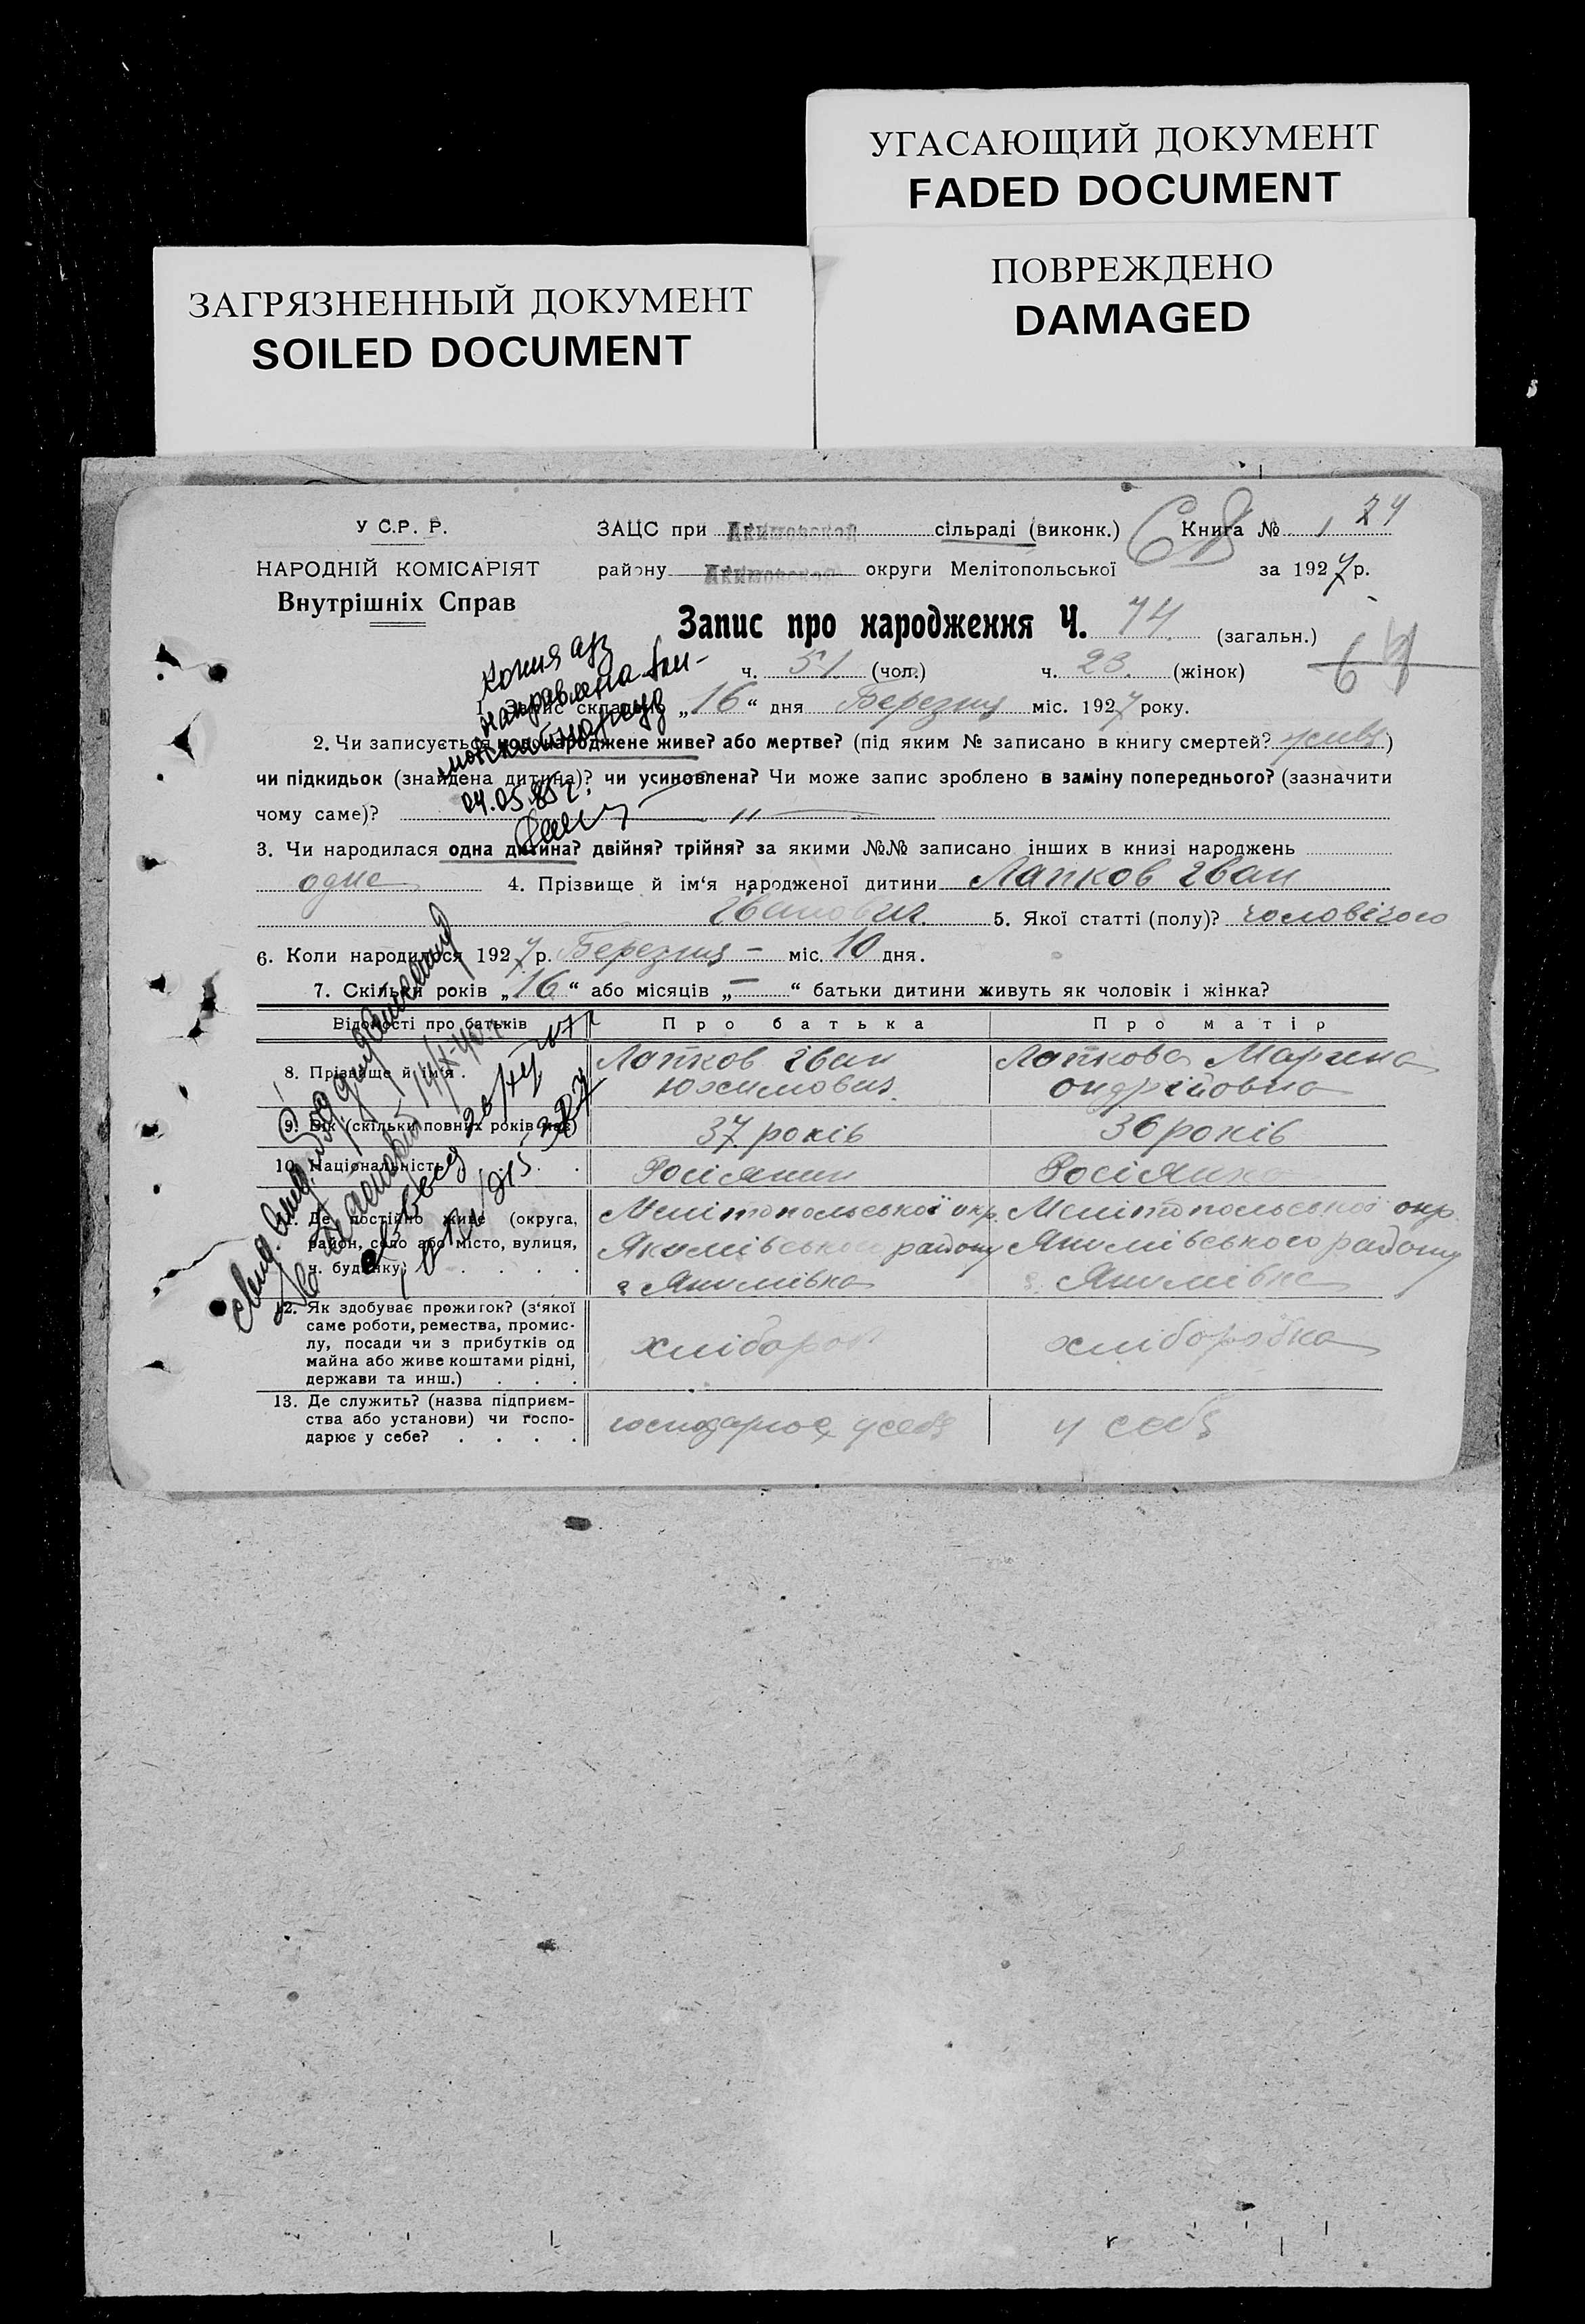 УГАСАЮЩИЙ ДОКУМЕНТ
FADED DOCUMENT
ПОВРЕЖДЕНО
DAMAGED
ЗАГРЯЗНЕННЫЙ ДОКУМЕНТ
SOILED DOCUMENT
У С.Р. Р.
НАРОДНІЙ КОМІСАРІЯТ
Внутрішніх Справ
ЗАЦС при Якимовской сільраді (виконк.) 68 Книга № 1 24
району Якимовской округи Мелітопольської за 1927 р.
Запис про народження Ч. 74 (загальн.)
ч. 51 (чол.) ч. 23. (жінок)
копия а/з
направлена
04.05.85
1. Запис складено „16“ дня Березня міс. 1927 року.
2. Чи записується новонароджене живе? або мертве? (під яким № записано в книгу смертей? живе)
чи підкидьок (знайдена дитина)? чи усиновлена? Чи може запис зроблено в заміну попереднього? (зазначити
чому саме)? — „ —
3. Чи народилася одна дитина? двійня? трійня? за якими №№ записано інших в книзі народжень
одне 4. Прізвище й ім‘я народженої дитини Лапков Іван
Іванович. 5. Якої статті (полу)? чоловічого
6. Коли народилося 1927 р. Березня – міс. 10 дня.
7. Скільки років „16“ або місяців „—“ батьки дитини живуть як чоловік і жінка?
Відомості про батьків Про батька Про матір
8. Прізвище й ім‘я . Лапков Іван Юхимович. Лапкова Марина Ондрійовна
9. Вік (скільки повних років має) 37 років 36 років
10. Національність . . . Росіянин Росіянка
11. Де постійно живе (округа, район, село або місто, вулиця, ч. будинку) . . . . Мелітопольської окр. Якимівського району с Якимівка Мелітопольської окр. Якимівського району с. Якимівка
12. Як здобуває прожиток? (з‘якої саме роботи, ремества, промислу, посади чи з прибутків од майна або живе коштами рідні, держави та инш.) . . . хлібороб хлібробка
13. Де служить? (назва підприємства або установи) чи господарює у себе? . . . . господарює у себе у себе